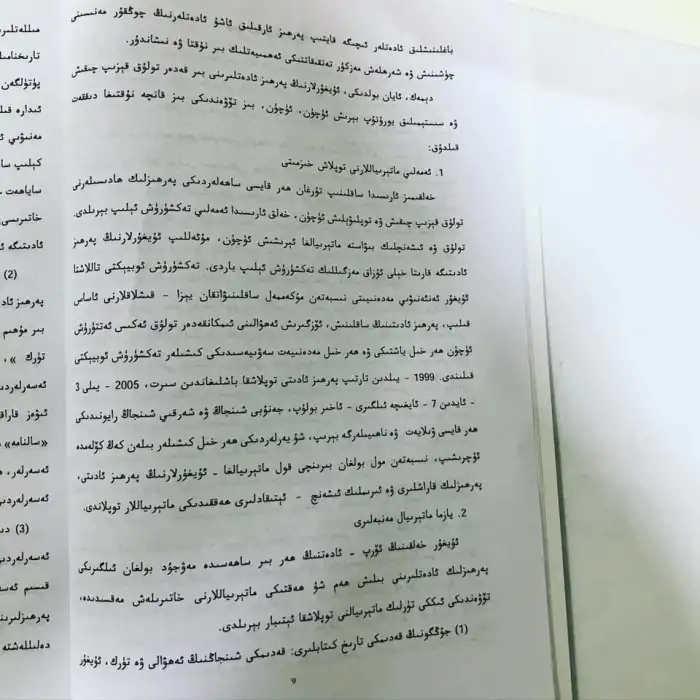 باغلىنىشلىق ئادەتلەر ئىچىگە قايتىپ پەرھىز ئارقىلىق ئاشۇ ئادەتلەرنىڭ چوڭقۇر مەنىسىنى
چۈشىنىش ۋە شەرھلەش مەزكۇر تەتقىقاتتىكى ئەھمىيەتلىك بىر نۇقتا ۋە نىشاندۇر.
دېمەك، ئايان بولدىكى، ئۇيغۇرلارنىڭ پەرھىز ئادەتلىرىنى بىر قەدەر تولۇق قېزىپ چىقىش
ۋە سىستېمىلىق يورۇتۇپ بېرىش ئۈچۈن، ئۈچۈن، بىز تۆۋەندىكى بىز قانچە نۇقتىغا دىققەت
قىلدۇق:
1. ئەمەلىي ماتېرىياللارنى توپلاش خىزمىتى
خەلقىمىز ئارىسىدا ساقلىنىپ تۇرغان ھەر قايسى ساھەلەردىكى پەرھىزلىك ھادىسىلەرنى
تولۇق قېزىپ چىقىش ۋە توپلىۋېلىش ئۈچۈن، خەلق ئارىسىدا ئەمەلىي تەكشۈرۈش ئېلىپ بېرىلدى.
تولۇق ۋە ئىشەنچلىك بىۋاستە ماتېرىيالغا ئېرىشىش ئۈچۈن، مۇئەللىپ ئۇيغۇرلارنىڭ پەرھىز
ئادىتىگە قارىتا خېلى ئۇزاق مەزگىللىك تەكشۈرۈش ئېلىپ باردى. تەكشۈرۈش ئوبيېكتى تاللاشتا
ئۇيغۇر ئەنئەنىۋىي مەدەنىيىتى نىسبەتەن مۇكەممەل ساقلىنىۋاتقان يېزا - قىشلاقلارنى ئاساس
قىلىپ، پەرھىز ئادىتىنىڭ ساقلىنىش، ئۆزگىرىش ئەھۋالىنى ئىمكانقەدەر تولۇق ئەكس ئەتتۈرۈش
ئۈچۈن ھەر خىل ياشتىكى ۋە ھەر خىل مەدەنىيەت سەۋىيەسىدىكى كىشىلەر تەكشۈرۈش ئوبيېكتى
قىلىندى. 1999 - يىلدىن تارتىپ پەرھىز ئادىتى توپلاشقا باشلىغاندىن سىرت، 2005 - يىلى 3
- ئايدىن 7 - ئايغىچە ئىلگىرى - ئاخىر بولۇپ، جەنۇبىي شىنجاڭ ۋە شەرقىي شىنجاڭ رايونىدىكى
ھەر قايسى ۋىلايەت ۋە ناھىيىلەرگە بېرىپ، شۇ يەرلەردىكى ھەر خىل كىشىلەر بىلەن كەڭ كۆلەمدە
ئۇچرىشىپ، نىسبەتەن مول بولغان بىرىنچى قول ماتېرىيالغا - ئۇيغۇرلارنىڭ پەرھىز ئادىتى،
پەرھىزلىك قاراشلىرى ۋە ئىرىملىك ئىشەنچ - ئېتىقادلىرى ھەققىدىكى ماتېرىياللار توپلاندى.
2. يازما ماتېرىيال مەنبەلىرى
ئۇيغۇر خەلقىنىڭ ئۆرپ - ئادەتنىڭ ھەر بىر ساھەسىدە مەۋجۇد بولغان ئىلگىرىكى
پەرھىزلىك ئادەتلىرىنى بىلىش ھەم شۇ ھەقتىكى ماتېرىياللارنى خاتىرىلەش مەقسىدىدە،
تۆۋەندىكى ئىككى تۈرلىك ماتېرىيالنى توپلاشقا ئېتىبار بېرىلدى.
(1) جۇڭگونىڭ قەدىمكى تارىخ كىتابلىرى: قەدىمكى شىنجاڭنىڭ ئەھۋالى ۋە تۈرك، ئۇيغۇر
9
مىللەتلىر
تارىخنامىل
پۈتۈلگەن
ئىدارە قىل
مەنىۋىي ئ
كېلىپ سا
ساياھەت
خاتىرىسى
ئادىتىگە ئ
(2)
پەرھىز ئاد
بىر مۇھىم
تۈرك »،
ئەسەرلەرد
ئىۋەز قاراق
«سالنامە»
ئەسەرلەر،
ئەسەرلەردى
(3) دى
ئەسەرلەردى
قىسىم ئەسە
پەرھىزلىرىن
دەلىللەشتە